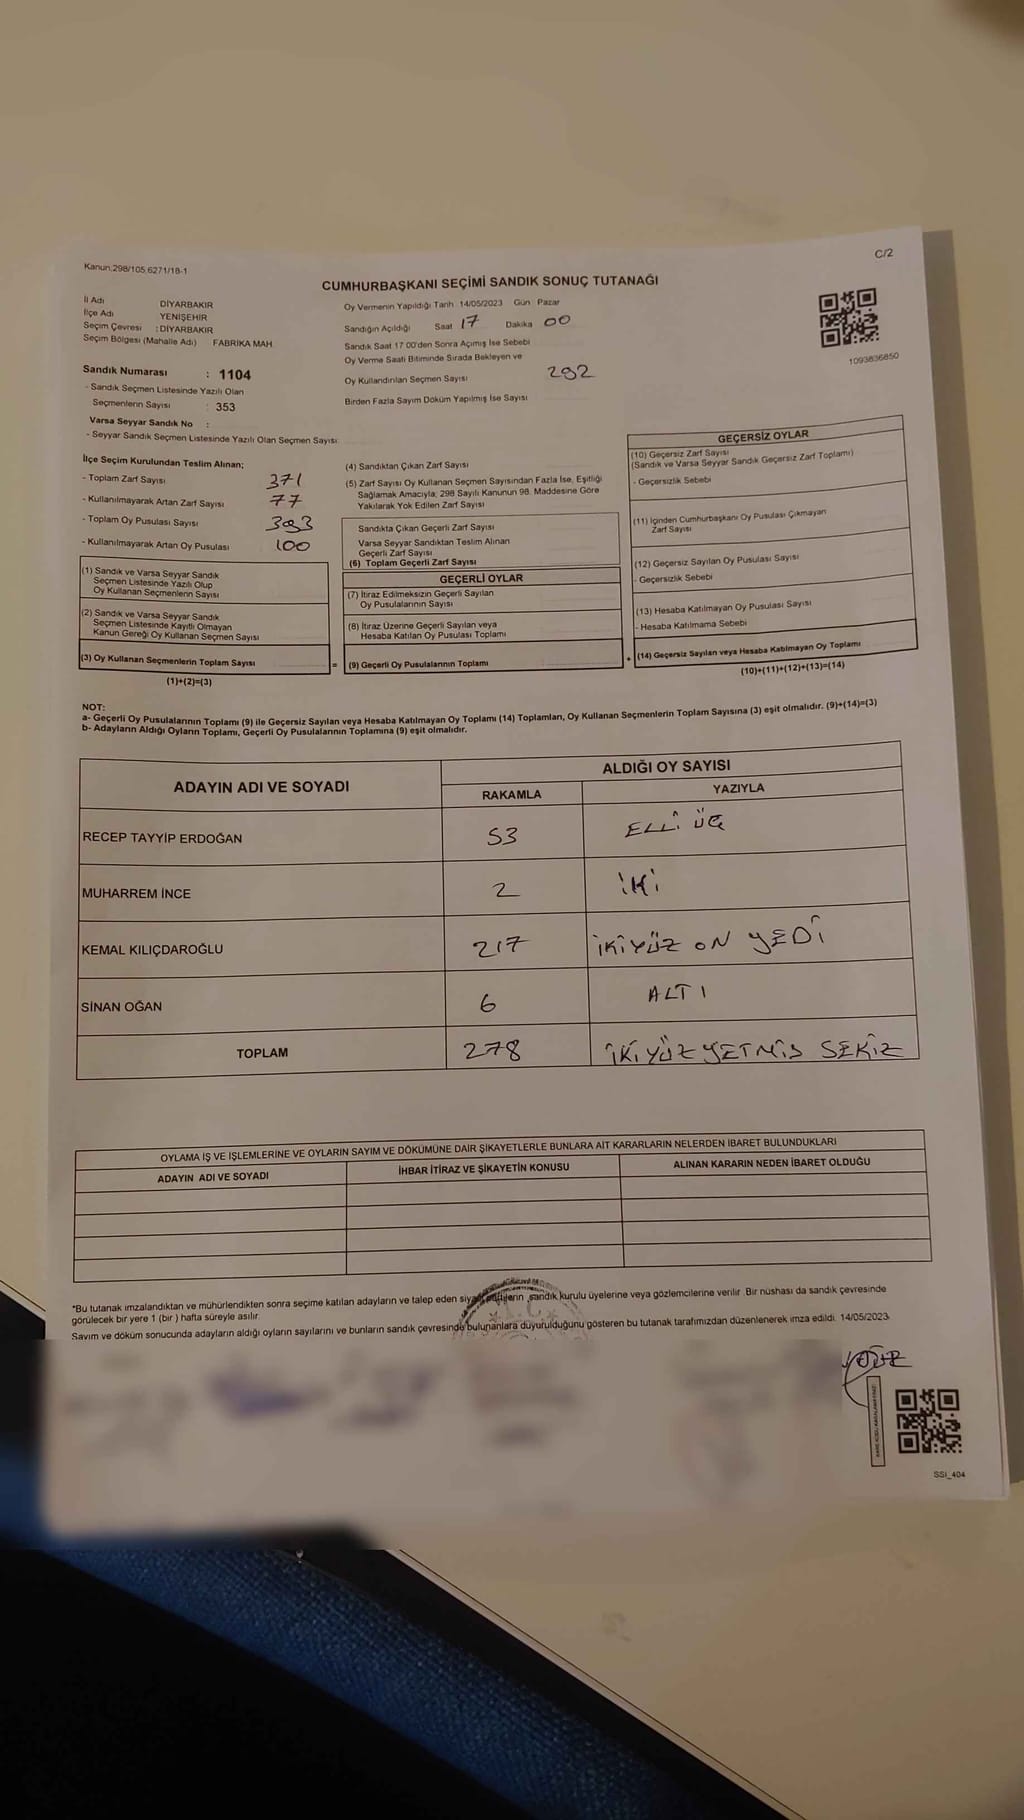 Kanun.298/105.6271/18-1
C/2
CUMHURBAŞKANI SEÇİMİ SANDIK SONUÇ TUTANAĞI
İl Adı DİYARBAKIR
İlçe Adı YENİŞEHİR
Seçim Çevresi : DİYARBAKIR
Seçim Bölgesi (Mahalle Adı) FABRİKA MAH.
Oy Vermenin Yapıldığı Tarih 14/05/2023 Gün Pazar
Sandığın Açıldığı Saat 17 Dakika 00
Sandık Saat 17 00'den Sonra Açımış İse Sebebi
Oy Verme Saati Bitiminde Sırada Bekleyen ve
Oy Kullandırılan Seçmen Sayısı 292
Birden Fazla Sayım Döküm Yapılmış İse Sayısı
1093836850
Sandık Numarası : 1104
- Sandık Seçmen Listesinde Yazılı Olan
Seçmenlerin Sayısı : 353
Varsa Seyyar Sandık No :
- Seyyar Sandık Seçmen Listesinde Yazılı Olan Seçmen Sayısı:
İlçe Seçim Kurulundan Teslim Alınan;
- Toplam Zarf Sayısı 371
- Kullanılmayarak Artan Zarf Sayısı 77
- Toplam Oy Pusulası Sayısı 393
- Kullanılmayarak Artan Oy Pusulası 100
(1) Sandık ve Varsa Seyyar Sandık
Seçmen Listesinde Yazılı Olup
Oy Kullanan Seçmenlerin Sayısı
(2) Sandık ve Varsa Seyyar Sandık
Seçmen Listesinde Kayıtlı Olmayan
Kanun Gereği Oy Kullanan Seçmen Sayısı
(3) Oy Kullanan Seçmenlerin Toplam Sayısı
(1)+(2)=(3)
(4) Sandıktan Çıkan Zarf Sayısı
(5) Zarf Sayısı Oy Kullanan Seçmen Sayısından Fazla İse, Eşitliği
Sağlamak Amacıyla; 298 Sayılı Kanunun 98. Maddesine Göre
Yakılarak Yok Edilen Zarf Sayısı
Sandıkta Çıkan Geçerli Zarf Sayısı
Varsa Seyyar Sandıktan Teslim Alınan
Geçerli Zarf Sayısı
(6) Toplam Geçerli Zarf Sayısı
GEÇERLİ OYLAR
(7) İtiraz Edilmeksizin Geçerli Sayılan
Oy Pusulalarının Sayısı
(8) İtiraz Üzerine Geçerli Sayılan veya
Hesaba Katılan Oy Pusulası Toplamı
= (9) Geçerli Oy Pusulalarının Toplamı
GEÇERSİZ OYLAR
(10) Geçersiz Zarf Sayısı
(Sandık ve Varsa Seyyar Sandık Geçersiz Zarf Toplamı)
- Geçersizlik Sebebi
(11) İçinden Cumhurbaşkanı Oy Pusulası Çıkmayan
Zarf Sayısı
(12) Geçersiz Sayılan Oy Pusulası Sayısı
- Geçersizlik Sebebi
(13) Hesaba Katılmayan Oy Pusulası Sayısı
- Hesaba Katılmama Sebebi
+ (14) Geçersiz Sayılan veya Hesaba Katılmayan Oy Toplamı
(10)+(11)+(12)+(13)=(14)
NOT:
a- Geçerli Oy Pusulalarının Toplamı (9) ile Geçersiz Sayılan veya Hesaba Katılmayan Oy Toplamı (14) Toplamları, Oy Kullanan Seçmenlerin Toplam Sayısına (3) eşit olmalıdır. (9)+(14)=(3)
b- Adayların Aldığı Oyların Toplamı, Geçerli Oy Pusulalarının Toplamına (9) eşit olmalıdır.
ADAYIN ADI VE SOYADI
ALDIĞI OY SAYISI
RAKAMLA YAZIYLA
RECEP TAYYİP ERDOĞAN 53 ELLİ ÜÇ
MUHARREM İNCE 2 İKİ
KEMAL KILIÇDAROĞLU 217 İKİYÜZ ON YEDİ
SİNAN OĞAN 6 ALTI
TOPLAM 278 İKİYÜZ YETMİS SEKİZ
OYLAMA İŞ VE İŞLEMLERİNE VE OYLARIN SAYIM VE DÖKÜMÜNE DAİR ŞİKAYETLERLE BUNLARA AİT KARARLARIN NELERDEN İBARET BULUNDUKLARI
ADAYIN ADI VE SOYADI İHBAR İTİRAZ VE ŞİKAYETİN KONUSU ALINAN KARARIN NEDEN İBARET OLDUĞU
*Bu tutanak imzalandıktan ve mühürlendikten sonra seçime katılan adayların ve talep eden siyasi partilerin ,sandık kurulu üyelerine veya gözlemcilerine verilir. Bir nüshası da sandık çevresinde
görülecek bir yere 1 (bir ) hafta süreyle asılır.
Sayım ve döküm sonucunda adayların aldığı oyların sayılarını ve bunların sandık çevresinde bulunanlara duyurulduğunu gösteren bu tutanak tarafımızdan düzenlenerek imza edildi. 14/05/2023
T.C.
SSI_404